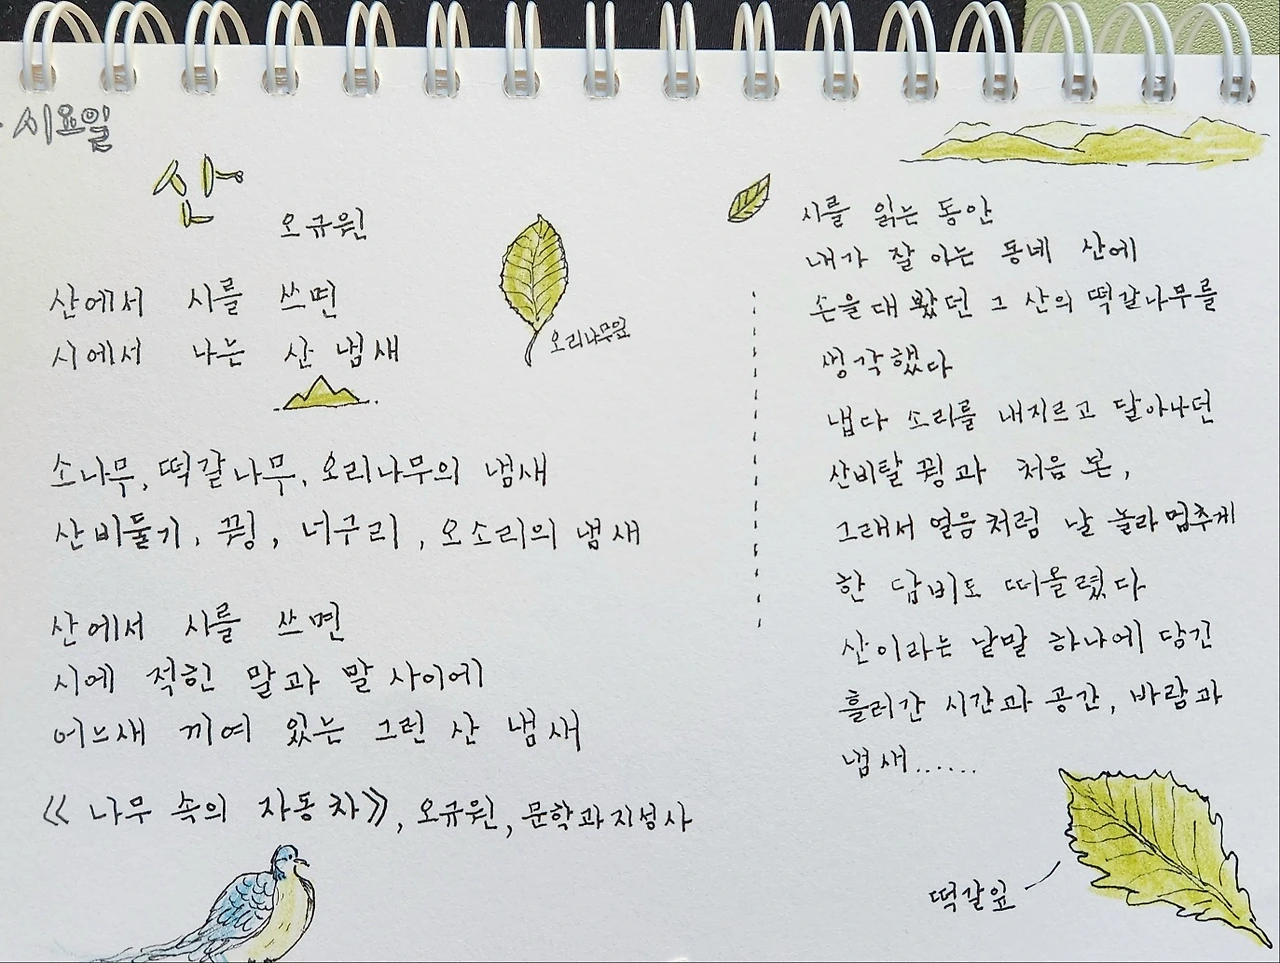 시요일
산
오규원
산에서 시를 쓰면
시에서 나는 산 냄새
오리나무잎
소나무, 떡갈나무, 오리나무의 냄새
산비둘기, 꿩, 너구리, 오소리의 냄새
산에서 시를 쓰면
시에 적힌 말과 말 사이에
어느새 끼여 있는 그런 산 냄새
《나무 속의 자동차》, 오규원, 문학과지성사
시를 읽는 동안
내가 잘 아는 동네 산에
손을 대 봤던 그 산의 떡갈나무를
생각했다
냅다 소리를 내지르고 달아나던
산비탈 꿩과 처음 본,
그래서 얼음처럼 날 놀라 멈추게
한 담비도 떠올렸다
산이라는 낱말 하나에 담긴
흘러간 시간과 공간, 바람과
냄새......
떡갈잎